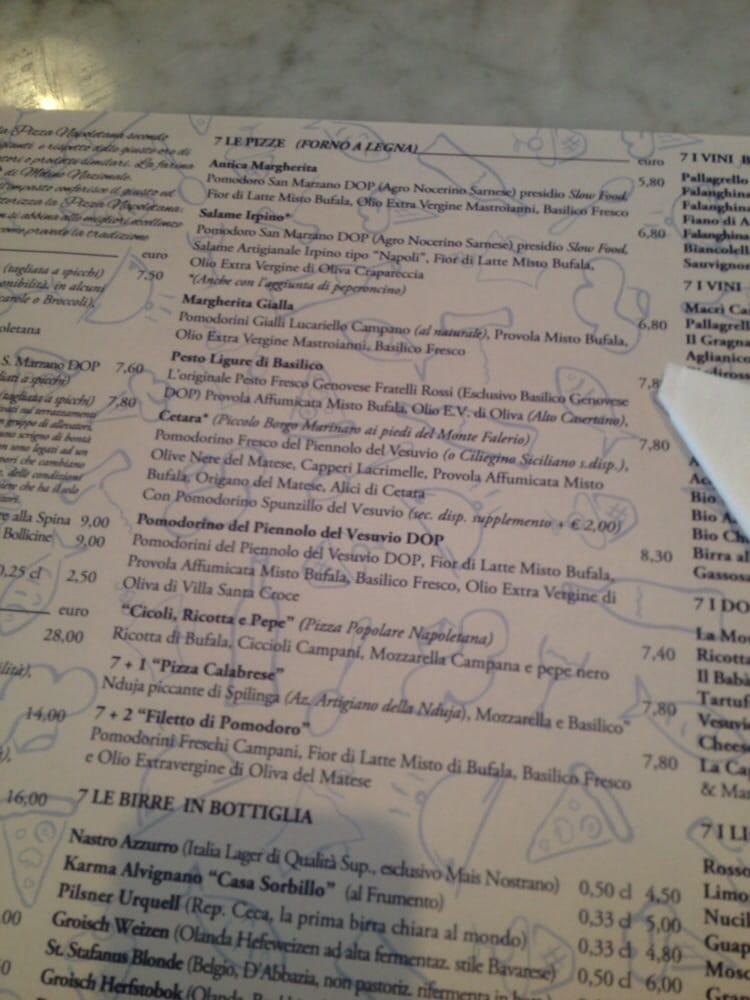 la Pizza Napoletana secondo
di Molino Nazionale.
euro
(tagliata a spicchi) 7,50
onibilità, in alcuni
carole o Broccoli),
oletana
S. Marzano DOP 7,60
(tagliata a spicchi) 7,80
re alla Spina 9,00
Bollicine 9,00
0,25 cl 2,50
euro
28,00
ilità),
14,00
16,00
7 LE PIZZE (FORNO A LEGNA) euro
Antica Margherita 5,80
Pomodoro San Marzano DOP (Agro Nocerino Sarnese) presidio Slow Food,
Fior di Latte Misto Bufala, Olio Extra Vergine Mastroianni, Basilico Fresco
Salame Irpino* 6,80
Pomodoro San Marzano DOP (Agro Nocerino Sarnese) presidio Slow Food,
Salame Artigianale Irpino tipo “Napoli”, Fior di Latte Misto Bufala,
Olio Extra Vergine di Oliva Crapareccia
*(Anche con l'aggiunta di peperoncino)
Margherita Gialla 6,80
Pomodorini Gialli Lucariello Campano (al naturale), Provola Misto Bufala,
Olio Extra Vergine Mastroianni, Basilico Fresco
Pesto Ligure di Basilico 7,8
L'originale Pesto Fresco Genovese Fratelli Rossi (Esclusivo Basilico Genovese
DOP) Provola Affumicata Misto Bufala, Olio E.V. di Oliva (Alto Casertano),
Cetara* (Piccolo Borgo Marinaro ai piedi del Monte Falerio) 7,80
Pomodorino Fresco del Piennolo del Vesuvio (o Ciliegino Siciliano s.disp.),
Olive Nere del Matese, Capperi Lacrimelle, Provola Affumicata Misto
Bufala, Origano del Matese, Alici di Cetara
Con Pomodorino Spunzillo del Vesuvio (sec. disp. supplemento + € 2,00)
Pomodorino del Piennolo del Vesuvio DOP 8,30
Pomodorini del Piennolo del Vesuvio DOP, Fior di Latte Misto Bufala,
Provola Affumicata Misto Bufala, Basilico Fresco, Olio Extra Vergine di
Oliva di Villa Santa Croce
“Cicoli, Ricotta e Pepe” (Pizza Popolare Napoletana) 7,40
Ricotta di Bufala, Ciccioli Campani, Mozzarella Campana e pepe nero
7 + 1 “Pizza Calabrese” 7,80
Nduja piccante di Spilinga (Az. Artigiano della Nduja), Mozzarella e Basilico"
7 + 2 “Filetto di Pomodoro” 7,80
Pomodorini Freschi Campani, Fior di Latte Misto di Bufala, Basilico Fresco
e Olio Extravergine di Oliva del Matese
7 LE BIRRE IN BOTTIGLIA
Nastro Azzurro (Italia Lager di Qualità Sup., esclusivo Mais Nostrano) 0,50 cl 4,50
Karma Alvignano “Casa Sorbillo” (al Frumento) 0,33 cl 5,00
Pilsner Urquell (Rep. Ceca, la prima birra chiara al mondo) 0,33 cl 4,80
Groisch Weizen (Olanda Hefeweizen ad alta fermentaz. stile Bavarese) 0,50 cl 6,00
St. Stafanus Blonde (Belgio, D'Abbazia, non pastoriz. rifermenta in
Groisch Herfstobok (Olanda,
7 I VINI B
Pallagrello
Falanghina
Falanghina
Fiano di A
Falanghina
Biancolell
Sauvignon
7 I VINI
Macrì Ca
Pallagrell
Il Gragna
Aglianico
Bio
Bio A
Bio Ch
Birra al
Gassosa
7 I DO
La Mo
Ricotta
Il Babà
Tartuf
Vesuvio
Cheese
La Cap
& Man
7 I LI
Rosso
Limo
Nucil
Guap
Mosc